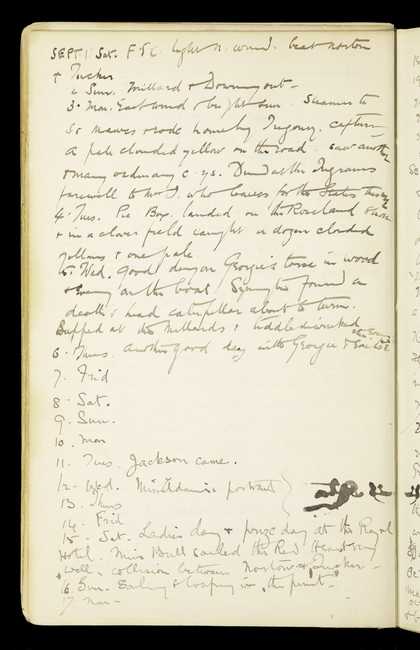 SEPT 1 Sat. F S C. light N. wind. beat Norton
& Tucker
2 Sun. Millard & Downing out -
3. Mon. East wind & bright sun. Steamer to
St Mawes & rode home by Tregony. Capture
a pale clouded yellow on the road. Saw another
& many ordinary c. ys. Dined at the Ingrams
farewell to Mr I. who leaves for the States
4. Tues. Pa Boy. landed on the Roseland
& in a clover field caught a dozen clouded
yellows & one pale
5. Wed. Good day on Georgie's torse in wood
& evening on the boat. found a
death's head caterpillar about to turn.
Supped at the Millards:
6. Thurs. Another good day with Georgie &
7. Frid
8. Sat.
9. Sun.
10. Mon
11. Tues. Jackson came.
12. Wed. portrait
13. Thurs
14. Frid
15. Sat. Ladies day & prize day at the Royal
Hotel. Miss Bull sailed the Red Heart very
well. collision between Norton &
16. Sun. Sailing & loafing in the punt.
17 Mon -